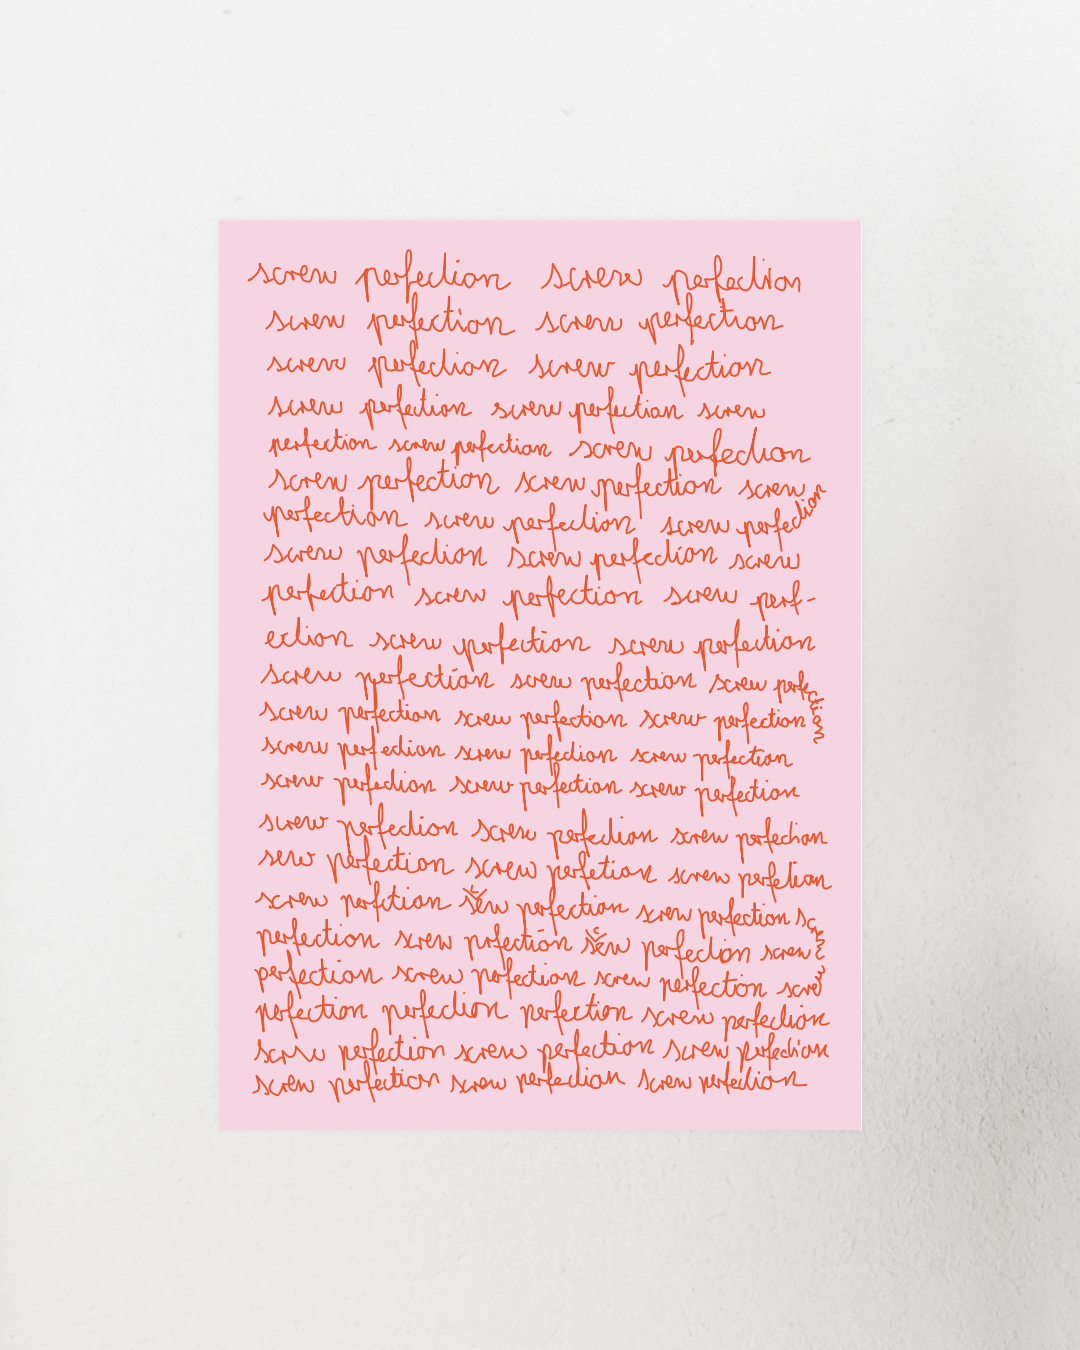 screw perfection screw perfection
screw perfection screw perfection
screw perfection screw perfection
screw perfection screw perfection screw
perfection screw perfection screw perfection
screw perfection screw perfection screw
perfection screw perfection screw perfection
screw perfection screw perfection screw
perfection screw perfection screw perf-
ection screw perfection screw perfection
screw perfection screw perfection screw perfection
screw perfection screw perfection screw perfection
screw perfection screw perfection screw perfection
screw perfection screw perfection screw perfection
screw perfection screw perfection screw perfection
serw perfection screw perfetion screw perfetion
screw perfction screw perfection screw perfection screw
perfection screw prfection screw perfection screw
perfection screw perfection screw perfection screw
perfection perfection perfection screw perfection
screw perfection screw perfection screw perfection
screw perfection screw perfection screw perfection